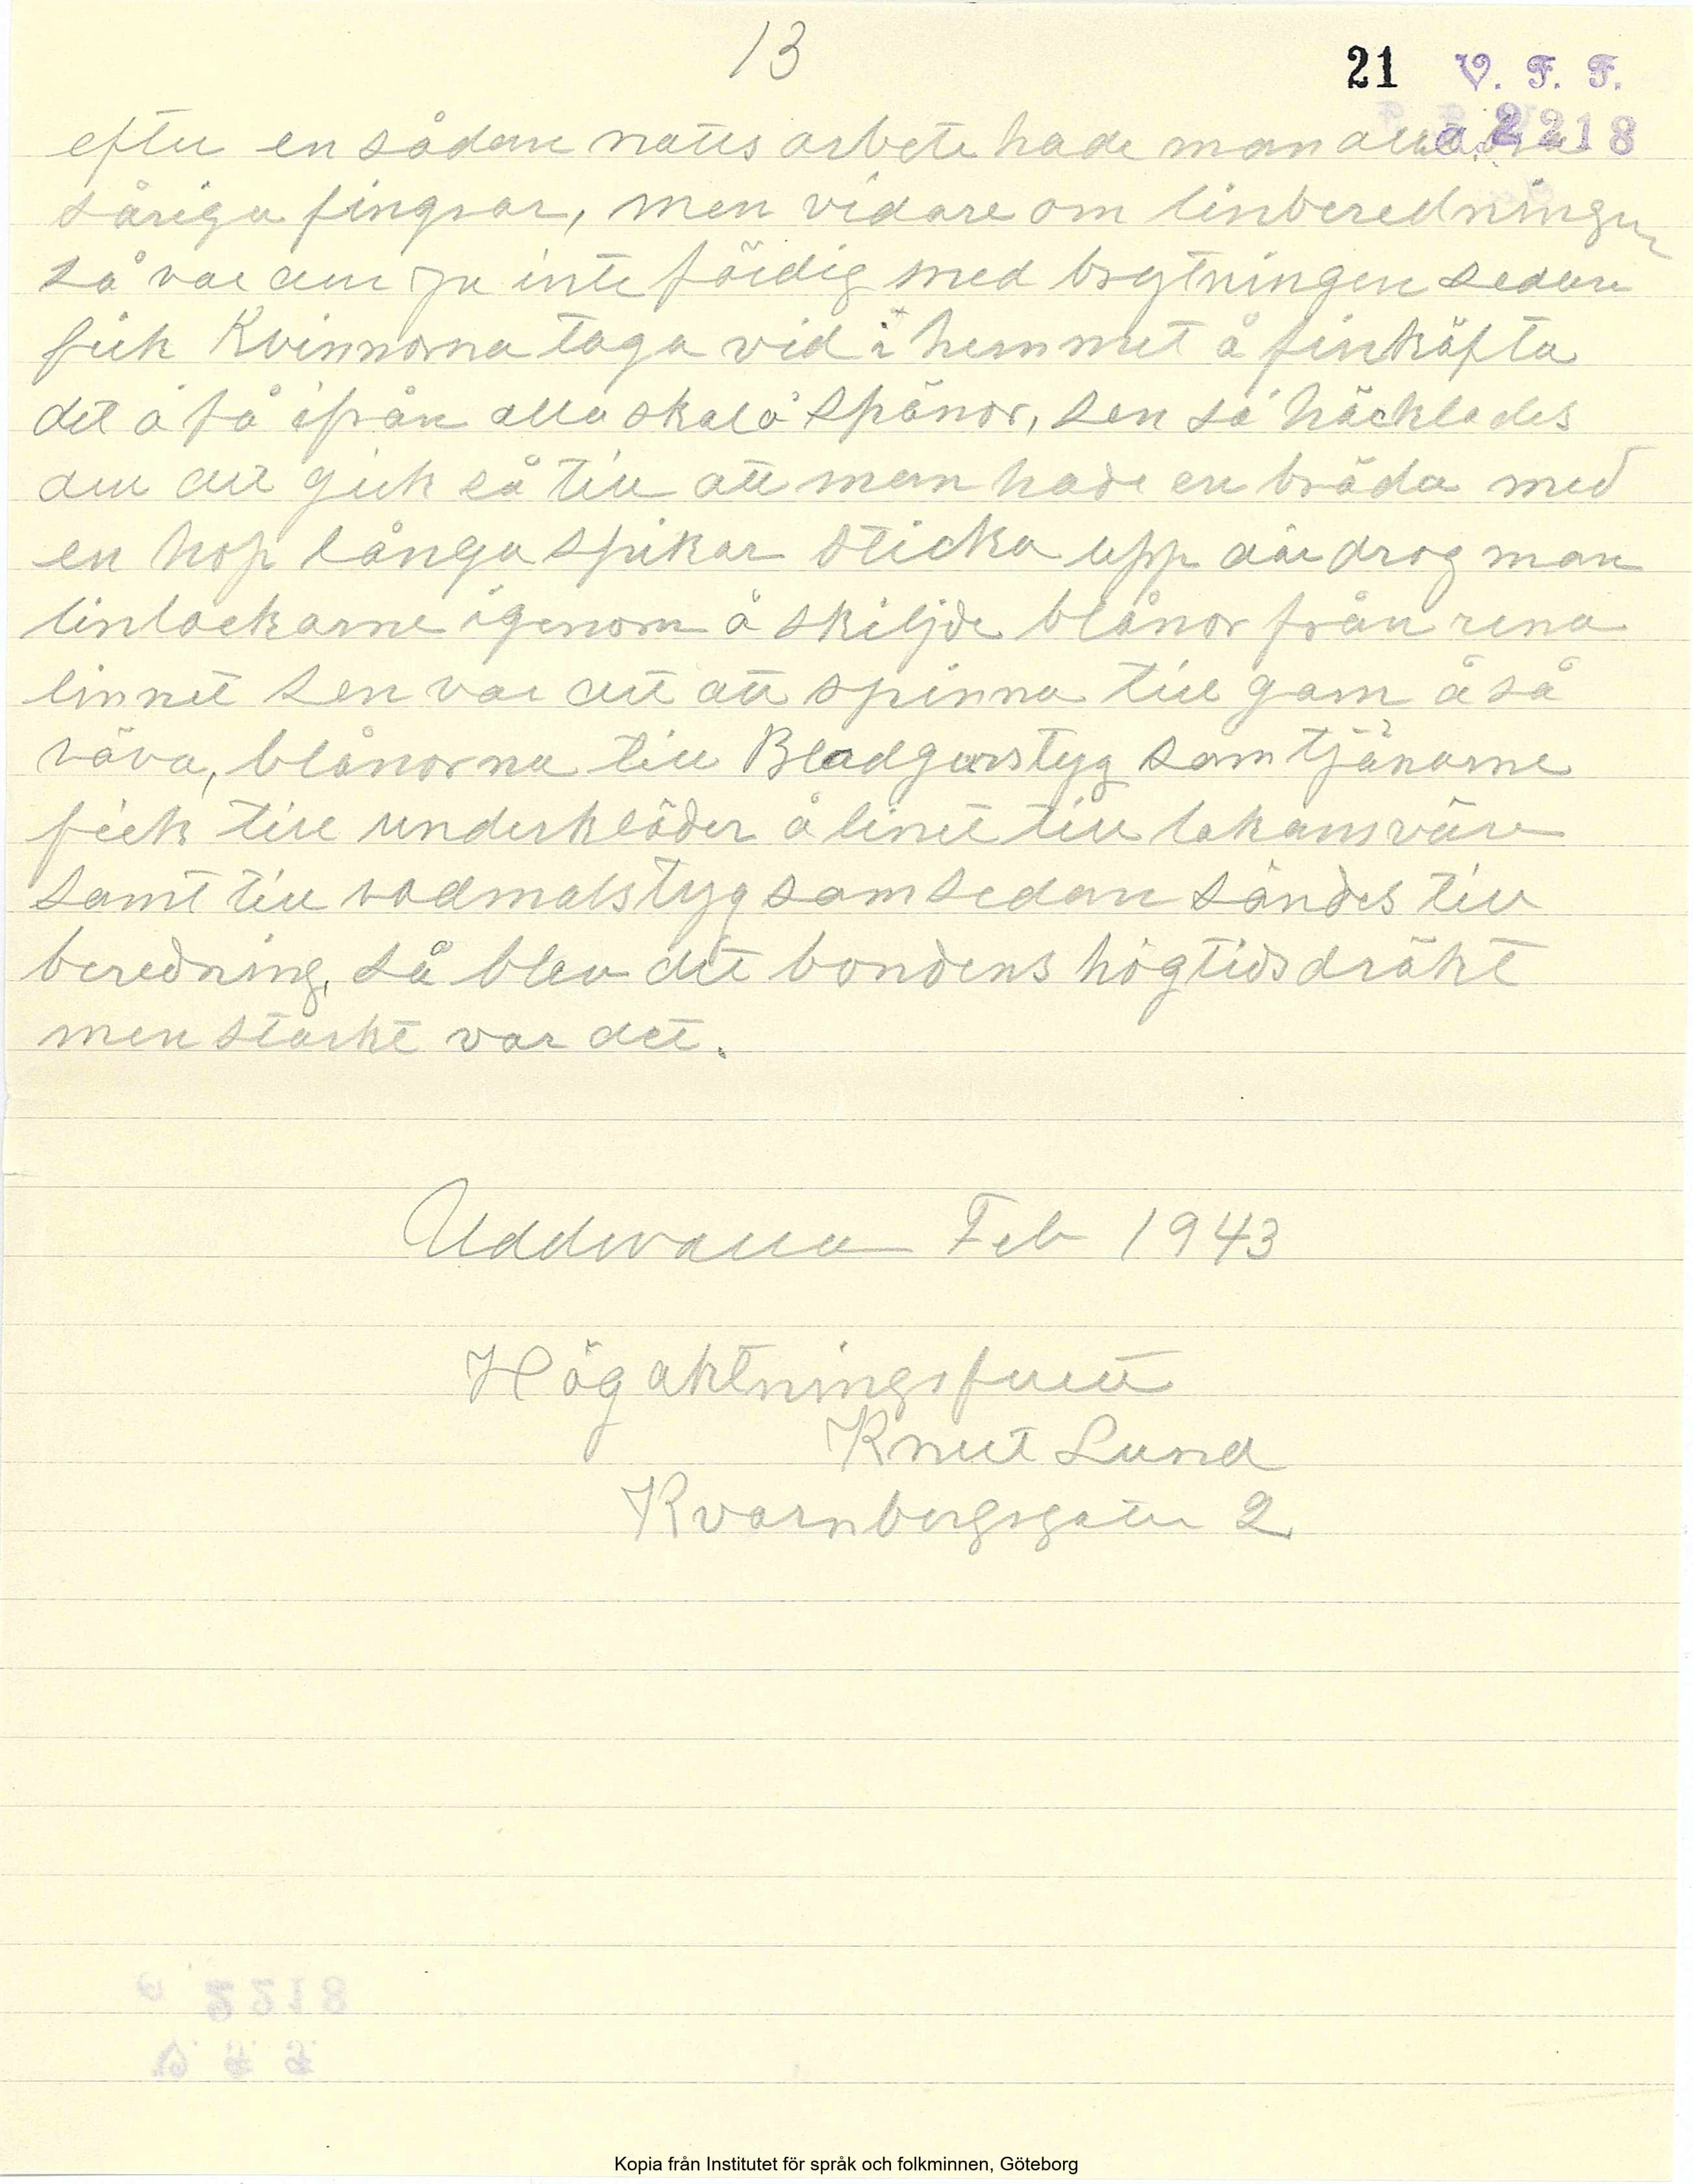 13
21 V. F. F.
a 2218
efter en sådan natts arbete hade man
såriga fingrar, men vidare om linberedningen
så var den ju inte färdig med brytningen sedan
fick Kvinnorna taga vid i hemmet å finkäfta
det å få ifrån alla skal å spånor, sen så häcklades
den det gick så till att man hade en bräda med
en hop långa spikar sticka upp där drog man
linlockarne igenom å skiljde blånor från rena
linnet sen var det att spinna till garn å så
väva, blånorna till Bladgarstyg som tjänarne
fick till underkläder å linet till lakansväv
samt till vadmalstyg som sedan sändes till
beredning, så blev det bondens högtidsdräkt
men starkt var det.
Uddevalla Feb 1943
Högaktningsfullt
Knut Lund
Kvarnbergsgatan 2
Kopia från Institutet för språk och folkminnen, Göteborg